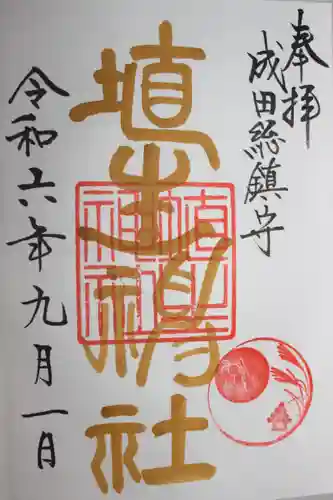 奉拝
成田総鎮守
埴生神社
令和六年九月一日
埴生神社